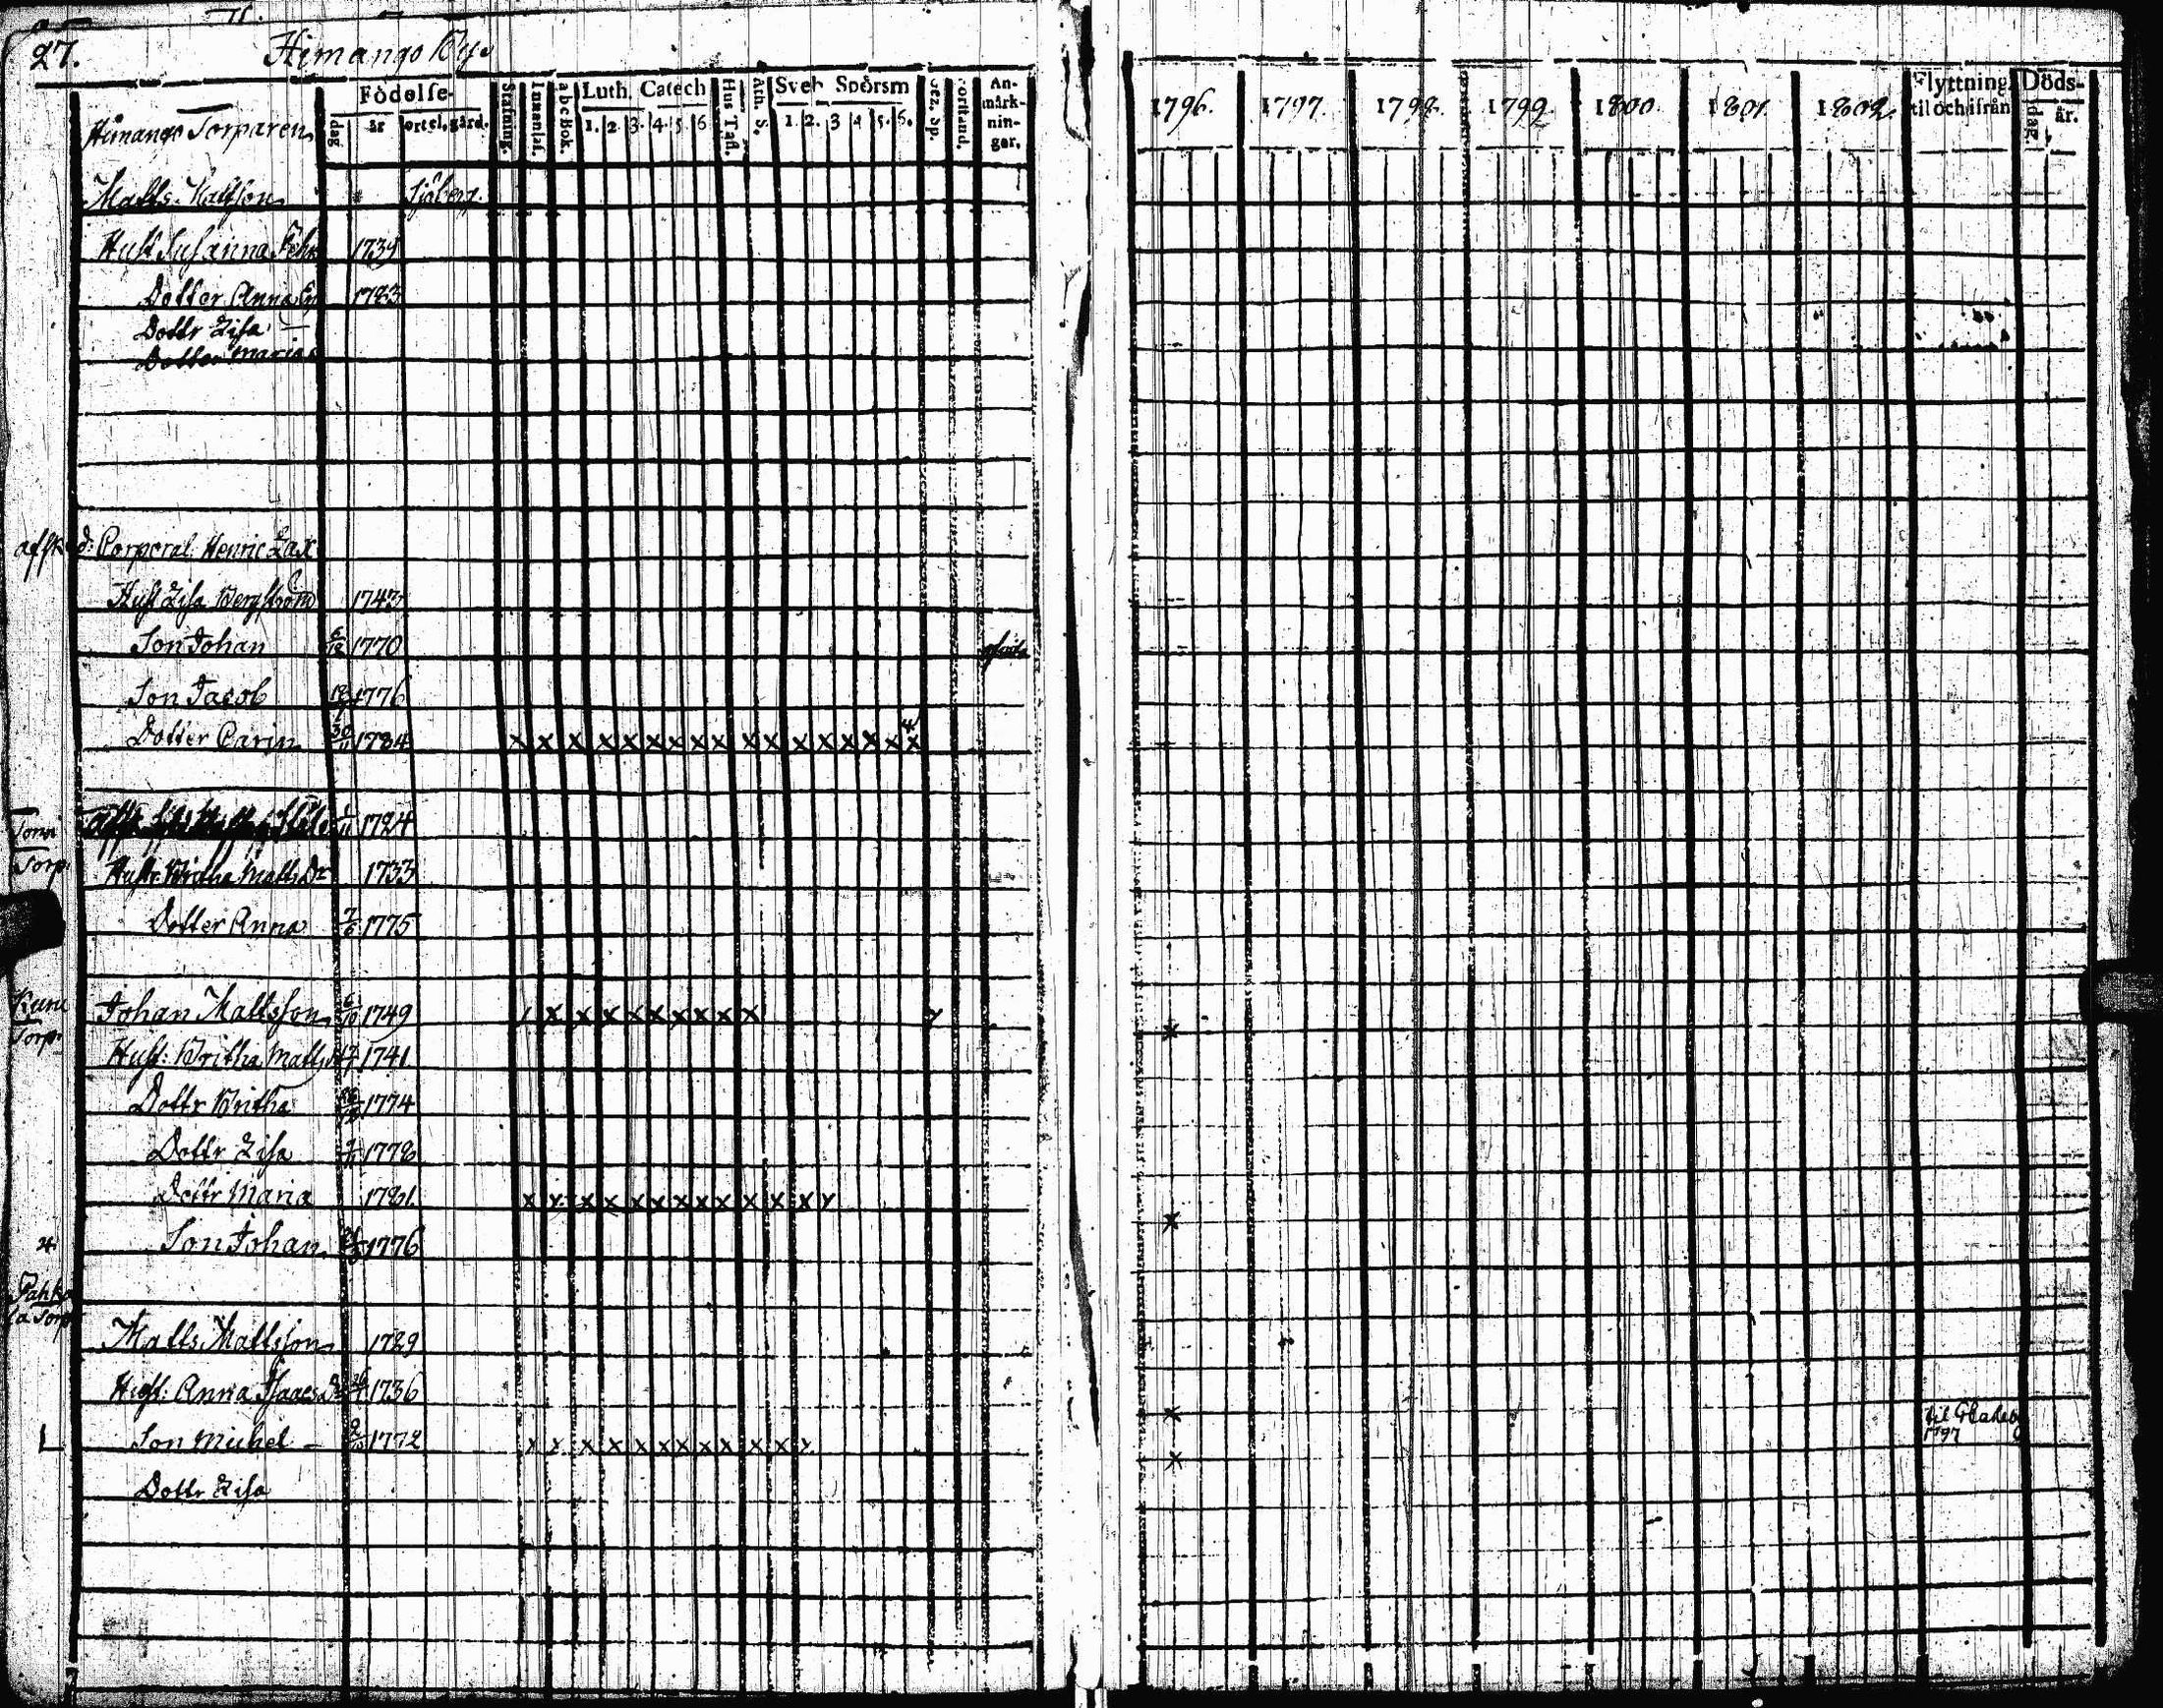 27. Himango By.
Födelse- Luth. Catech Sveb Spörsm An-
Himango Torparen dag år ort el. gård. Stafning. Innanläs. abc Bok. 1. 2. 3. 4. 5. 6 Hus Tafl. Ath. S. 1. 2. 3 4 5. 6. Förstand. märk-nin-gar.
1796. 1797. 1798. 1799. 1800. 1801. 1802. Flyttning til och ifrån Döds- dag. år.
Matts Mattsson Sjöberg.
Hust Susanna 1739
Dotter Anna 1783
Dottr Lisa
Dotter Maria
afsked: Corporal Henric Lax
Hust Lisa Bergström 1743
Son Johan 6/12 1770
Son Jacob 1776
Dotter Carin 30/11 1784 x x x x x x x x x x x x x x x x x
1724
Torp. Hustr. Britha Matts Dr 1733
Dotter Anna 7/6 1775
Torp. Johan Mattsson 6/10 1749 x x x x x x x x x
Hust: Britha Matts 1741
Dottr Britha 1774
Dottr Lisa 1778
Dottr Maria 1781. x x x x x x x x x x x x x
Son Johan 1776
Torp
Matts Mattsson 1729
Hust: Anna Isaacs Dr 1736
Son Michel 1772 x x x x x x x x x x x x til 1797
Dottr Lisa